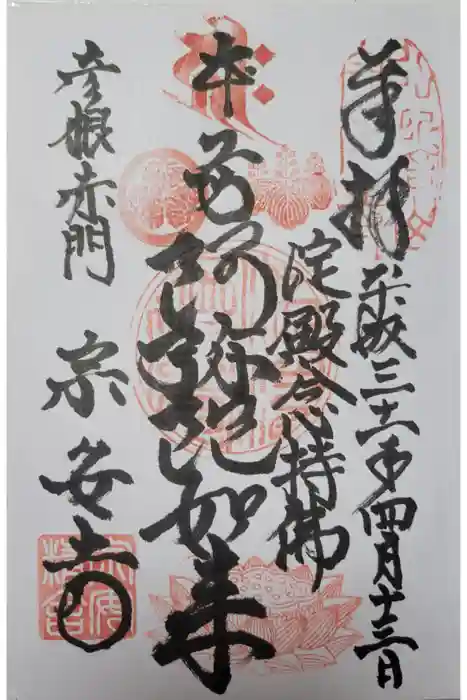 奉拝 平成三十一年四月十三日
淀殿念持佛
本尊 阿弥陀如来
彦根赤門 宗安寺